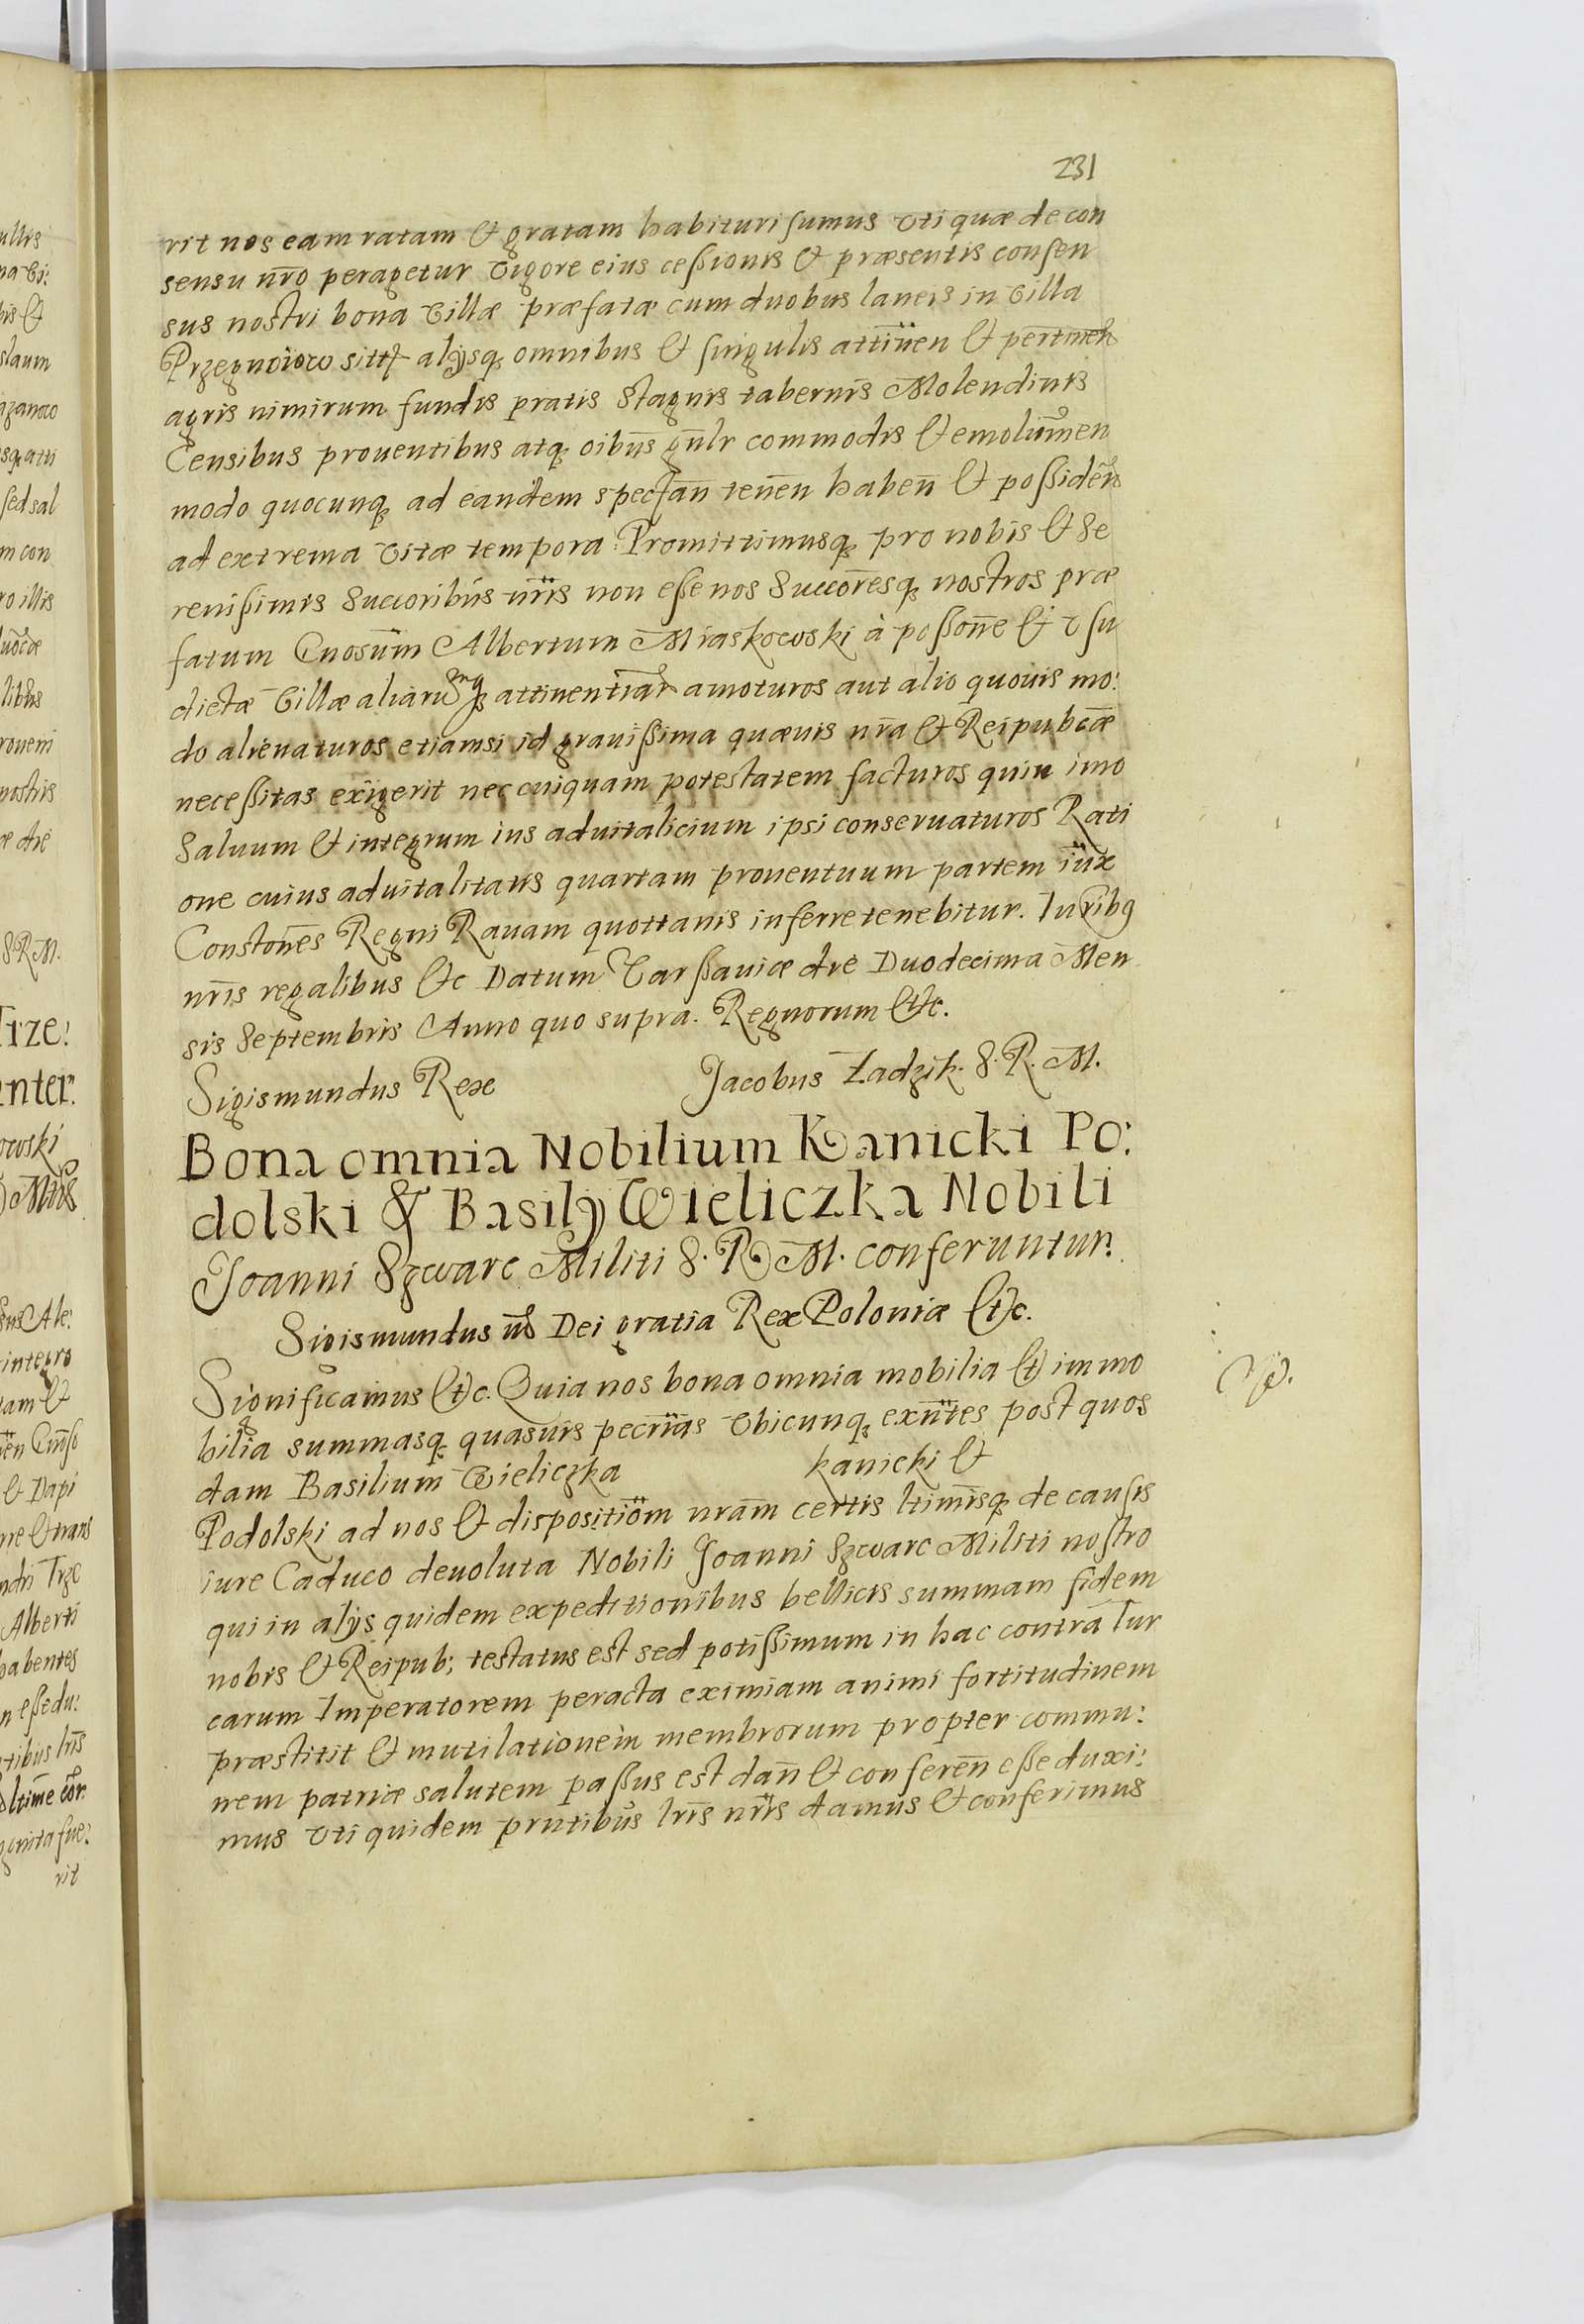 231
rit nos eam ratam & gratam habituri sumus vti quæ de con
sensu nr̄o peragetur vigore eius cessionis & præsentis consen
sus nostri bona villæ præfatæ cum duobus laneis in villa
alijsq; omnibus & singulis attinen & pertinen
agris nimirum fundis pratis stagnis tabernis Molendinis
Censibus prouentibus atq; oib̄us gn̄lr commodis & emolumen
modo quocunq; ad eandem spectan̄ tenen̄ haben̄ & possiden̄
ad extrema vitæ tempora: Promittimusq; pro nobis & Se
renissimis Succoribus nr̄is non esse nos Succoresq; nostros præ
fatum Gnosum Albertum Miaskowski à possoñe & vsu
dictæ villæ aliarumq; attinentiar amoturos aut alio quouis mo:
do alienaturos etiamsi id grauissima quæuis nr̄a & Reipubcæ
necessitas exigerit nec cuiquam potestatem facturos quin imo
Saluum & integrum ius aduitalicium ipsi conseruaturos Rati
one cuius aduitalitatis quartam prouentuum partem iux
Constoñes Regni Rauam quottanis inferre tenebitur. Iuribq
nr̄is regalibus &c Datum Varssauiæ die Duodecima Men
sis Septembris Anno quo supra. Regnorum &c.
Sigismundus Rex Jacobus Zadzik. S. R. M.
Bona omnia Nobilium Kanicki Po:
dolski & Basilij Wieliczka Nobili
Joanni Szwarc Militi S. R M. conferuntur.
Sigismundus Dei gratia Rex Poloniæ &c.
Significamus &c. Quia nos bona omnia mobilia & immo
bilia summasq; quasuis pecrias vbicunq; exn̄tes post quos
dam Basilium Wieliczka kanicki &
Podolski ad nos & dispositiom nram̄ certis ltimisq; de causis
iure Caduco deuoluta Nobili Joanni Szwarc Militi nostro
qui in alijs quidem expeditionibus bellicis summam fidem
nobis & Reipub; testatus est sed potissimum in hac contra Tur
carum Imperatorem peracta eximiam animi fortitudinem
præstitit & mutilationem membrorum propter commu:
nem patriæ salutem passus est dan̄ & conferen̄ esse duxi:
mus vti quidem prntibus lr̄is nr̄is damus & conferimus